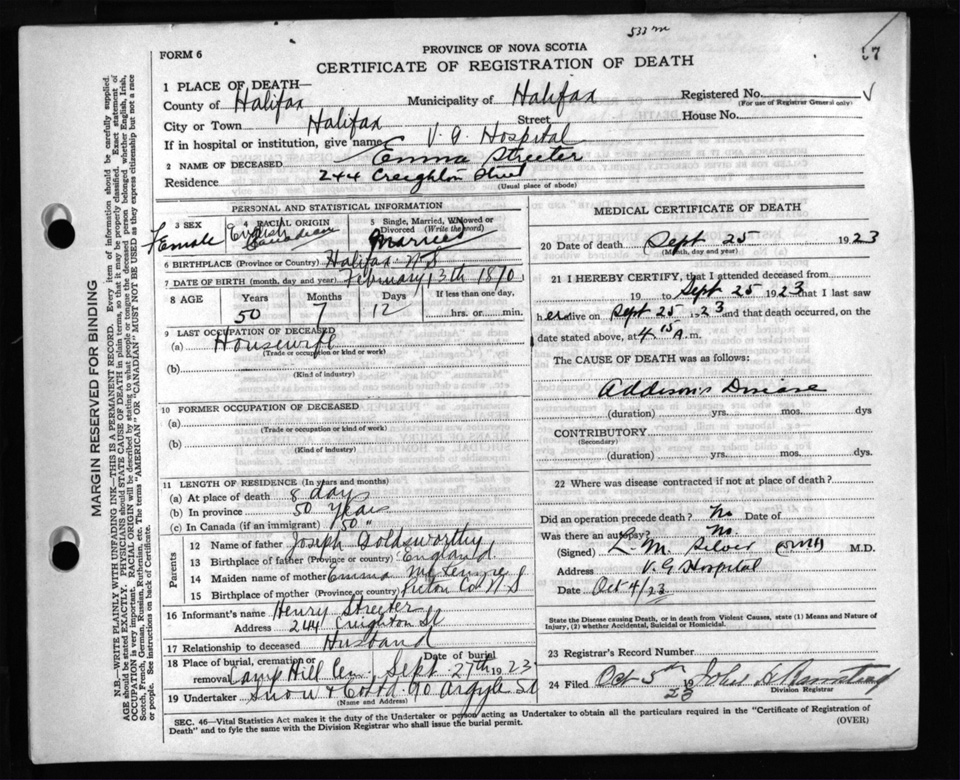 533 m
57
FORM 6
PROVINCE OF NOVA SCOTIA
CERTIFICATE OF REGISTRATION OF DEATH
1 PLACE OF DEATH—
County of Halifax Municipality of Halifax Registered No.
(For use of Registrar General only)
City or Town Halifax Street House No.
If in hospital or institution, give name V. G. Hospital
2 NAME OF DECEASED Emma Streeter
Residence 244 Creighton Street
(Usual place of abode)
PERSONAL AND STATISTICAL INFORMATION
3 SEX Female
4 RACIAL ORIGIN English Canadian
5 Single, Married, Widowed or Divorced (Write the word) Married
6 BIRTHPLACE (Province or Country) Halifax N S
7 DATE OF BIRTH (month, day and year) February 13th 1870
8 AGE Years Months Days If less than one day,
50 7 12 hrs. or min.
9 LAST OCCUPATION OF DECEASED
(a) Housewife
(Trade or occupation or kind or work)
(b)
(Kind of industry)
10 FORMER OCCUPATION OF DECEASED
(a)
(Trade or occupation or kind of work)
(b)
(Kind of industry)
11 LENGTH OF RESIDENCE (In years and months)
(a) At place of death 8 days
(b) In province 50 years
(c) In Canada (if an immigrant) 50 "
Parents
12 Name of father Joseph Goldsworthy
13 Birthplace of father (Province or country) England
14 Maiden name of mother Emma
15 Birthplace of mother (Province or country) Pictou Co. N S
16 Informant's name Henry Streeter
Address 244 Creighton St
17 Relationship to deceased Husband
18 Place of burial, cremation or removal Camp Hill Cem Date of burial Sept 27th 1923
19 Undertaker Snow & Co Ltd. 90 Argyle St
(Name and Address)
MEDICAL CERTIFICATE OF DEATH
20 Date of death Sept 25 1923
(Month, day and year)
21 I HEREBY CERTIFY, that I attended deceased from
19 to Sept 25 1923 that I last saw
her alive on Sept 25 1923 and that death occurred, on
date stated above, at 4 15 A. m.
The CAUSE OF DEATH was as follows:
Addison's Disease
(duration) yrs. mos. dys
CONTRIBUTORY
(Secondary)
(duration) yrs. mos. dys.
22 Where was disease contracted if not at place of death?
Did an operation precede death? No Date of
Was there an autopsy? No.
(Signed) L. M. Silver M.D.
Address V. G Hospital
Date Oct 4/23
State the Disease causing Death, or in death from Violent Causes, state (1) Means and Nature of
Injury, (2) whether Accidental, Suicidal or Homicidal.
23 Registrar's Record Number
24 Filed Oct 5th 1923 John
Division Registrar
SEC. 46—Vital Statistics Act makes it the duty of the Undertaker or person acting as Undertaker to obtain all the particulars required in the "Certificate of Registration of
Death" and to fyle the same with the Division Registrar who shall issue the burial permit.
(OVER)
MARGIN RESERVED FOR BINDING
N.B.—WRITE PLAINLY WITH UNFADING INK—THIS IS A PERMANENT RECORD. Every item of information should be carefully supplied.
AGE should be stated EXACTLY. PHYSICIANS should STATE CAUSE OF DEATH in plain terms, so that it may be properly classified. Exact statement of
OCCUPATION is very important. RACIAL ORIGIN will be described by stating to what people or tongue the deceased person belonged whether English, Irish,
Scotch, French, German, Russian, Ruthenian, etc. The terms "AMERICAN" OR "CANADIAN" MUST NOT BE USED as they express citizenship but not a race
or people. See instructions on back of Certificate.